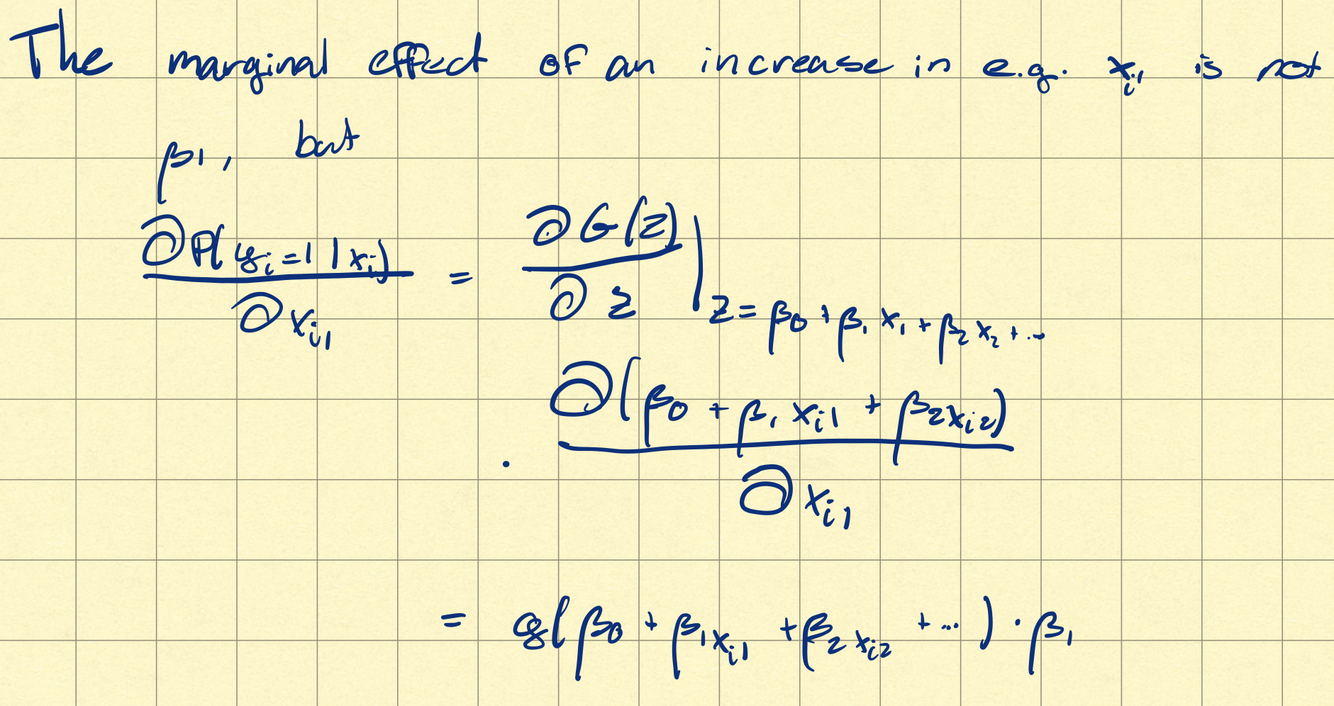 The marginal effect of an increase in e.g. x_{i1} is not
β1, but
∂P(y_i=1 | x_i) / ∂x_{i1} = ∂G(z) / ∂z |_{z = β_0 + β_1 x_1 + β_2 x_2 + ...}
· ∂(β_0 + β_1 x_{i1} + β_2 x_{i2}) / ∂x_{i1}
= g(β_0 + β_1 x_{i1} + β_2 x_{i2} + ...) · β_1